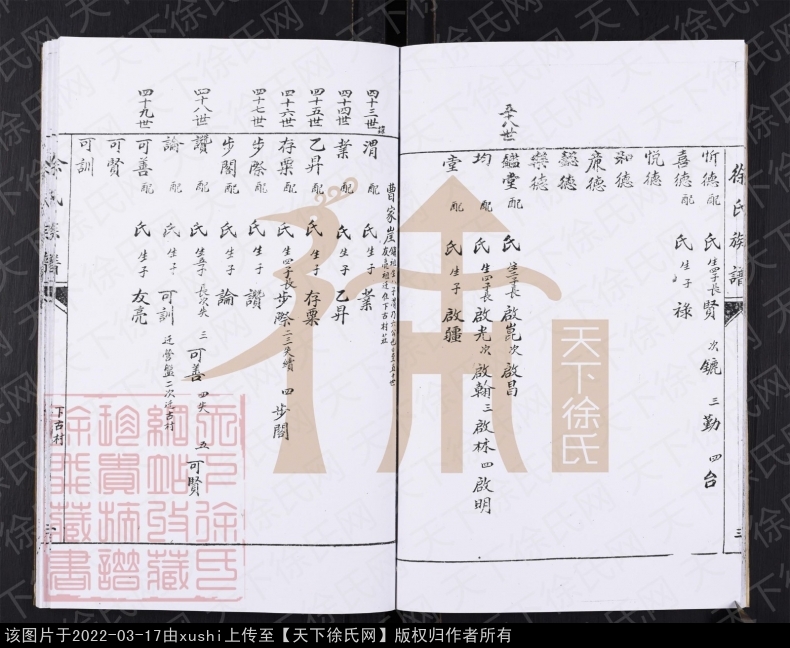 徐氏族譜
忻德 配 氏 生四子長 賢 次 鑣 三 勤 四 台
喜德 配 氏 生子 祿
悦德
和德
廉德
懿德
榮德
五十八世 鑑堂 配 氏 生二子長 啟崑 次 啟昌
均 配 氏 生四子長 啟光 次 啟翰 三 啟林 四 啟明
堂 配 氏 生子 啟疆
曹家崖
四十三世 渭 配 氏 生子 業
四十四世 業 配 氏 生子 乙昇
四十五世 乙昇 配 氏 生子 存粟
四十六世 存粟 配 氏 生四子長 步際 二三失續 四 步閣
四十七世 步際 配 氏 生子 讚
步閣 配 氏 生子 論
四十八世 讚 配 氏 生五子 長次失 三 可善 四失 五 可賢
論 配 氏 生子 可訓 迁营盤二次迁古村
四十九世 可善 配 氏 生子 友亮
可賢
可訓
徐氏族譜
下古村
天下徐氏
天下徐氏网
该图片于2022-03-17由xushi上传至【天下徐氏网】版权归作者所有